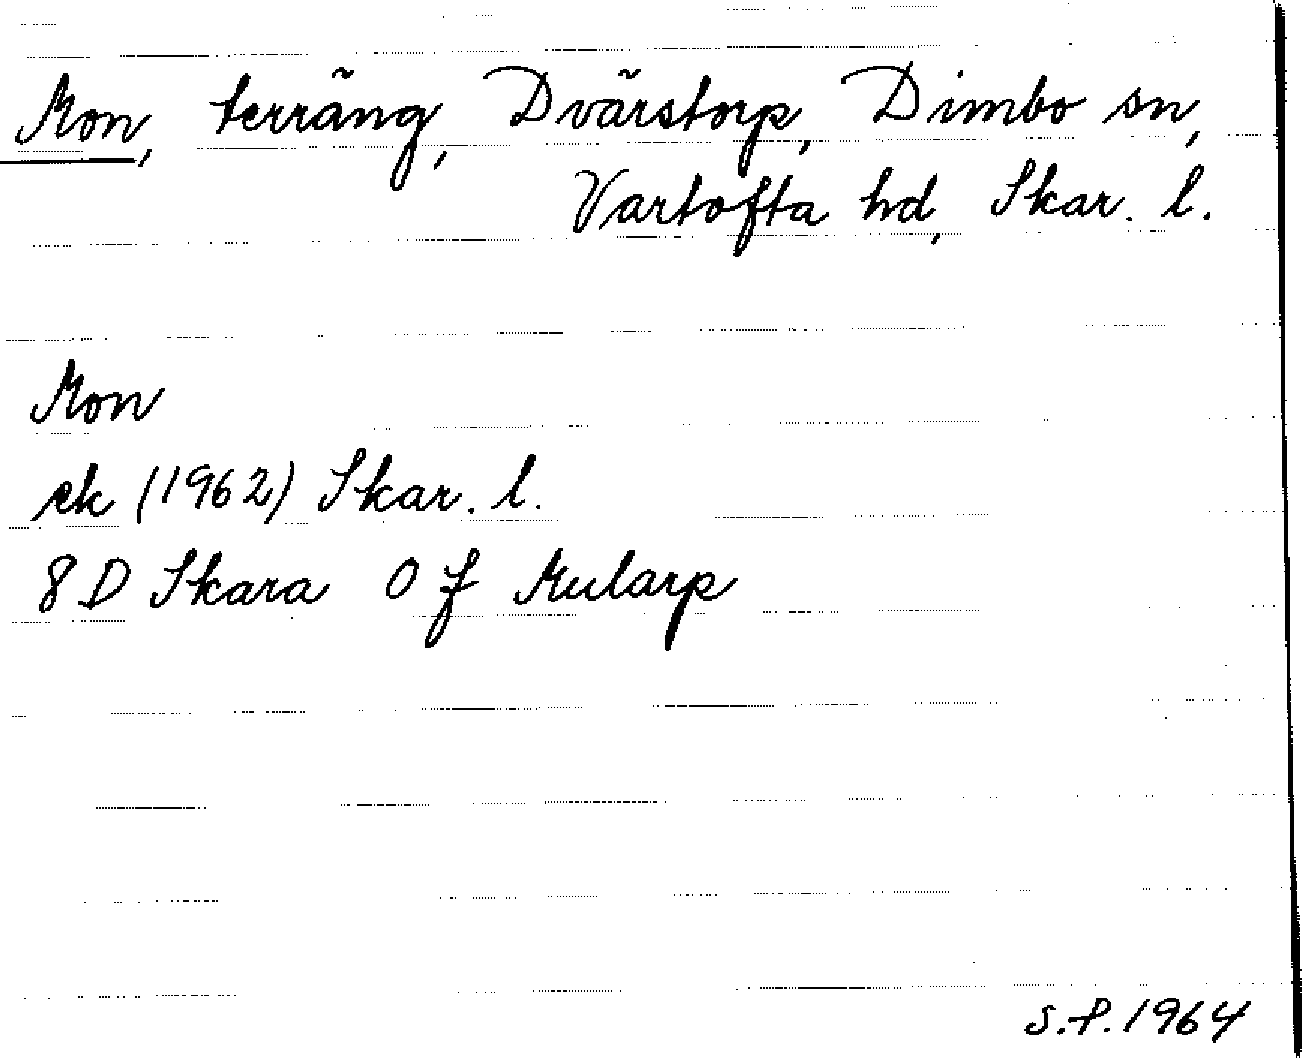 Mon, terräng, Dvärstorp, Dimbo sn,
Vartofta hd, Skar. l.
Mon
ek (1962) Skar. l.
8 D Skara O f Mularp
S.P. 1964